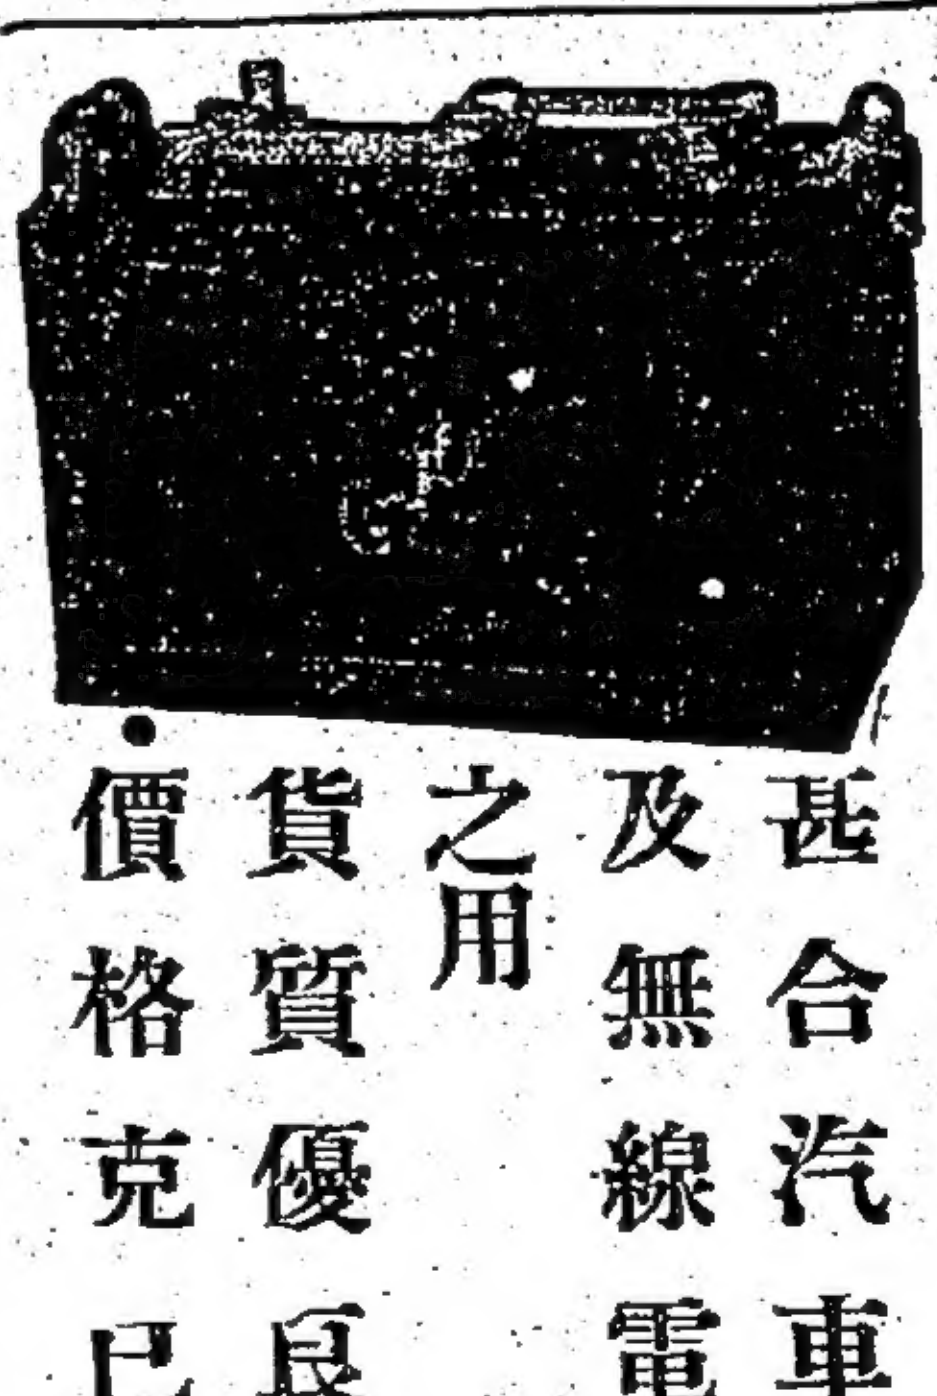 甚合汽車
及無線電
之用
貨質優良
價格克己